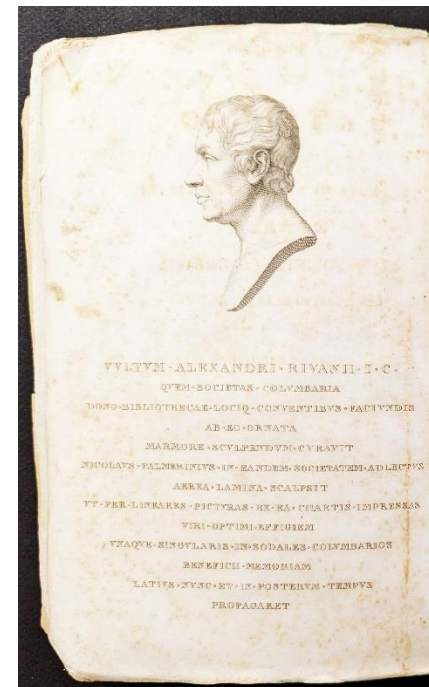 VVLTVM·ALEXANDRI·RIVANII·I·C·
QVEM·SOCIETAS·COLVMBARIA
DONO·BIBLIOTHECAE·LOCIQ·CONVENTIBVS·FACIVNDIS
AB·EO·ORNATA
MARMORE·SCVLPENDVM·CVRAVIT
NICOLAVS·PALMERINIVS·IN·EANDEM·SOCIETATEM·ADLECTVS
AEREA·LAMINA·SCALPSIT
VT·PER·LINEARES·PICTVRAS·EX·EA·CHARTIS·IMPRESSAS
VIRI·OPTIMI·EFFIGIEM
VNAQVE·SINGVLARIS·IN·SODALES·COLVMBARIOS
BENEFICII·MEMORIAM
LATIVS·NVNC·ET·IN·POSTERVM·TEMPVS
PROPAGARET